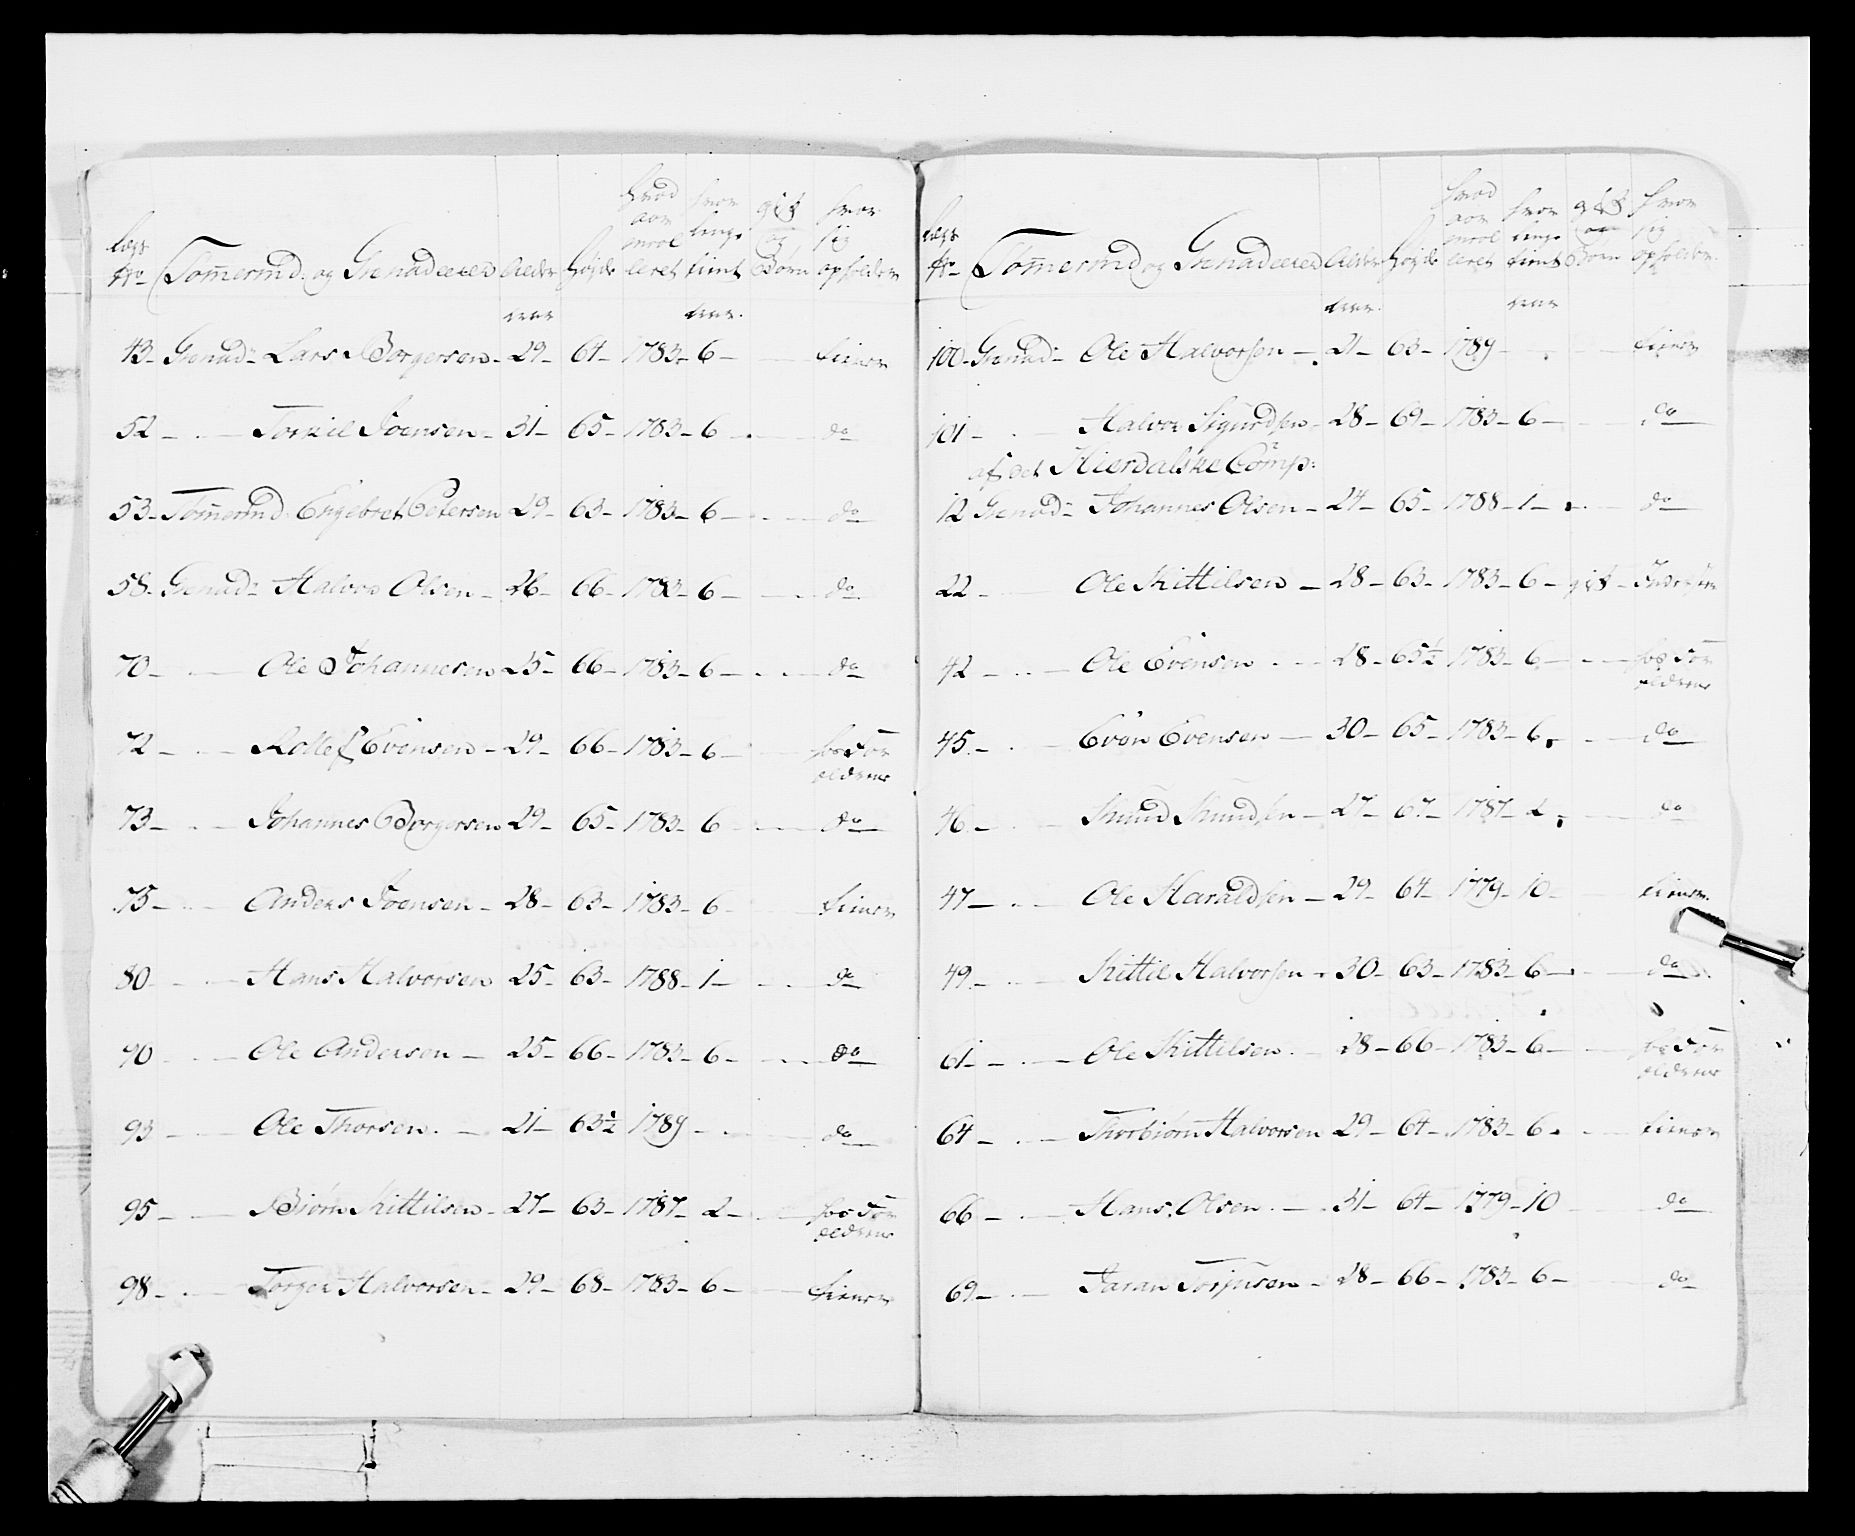 Lægs No Tømermd. og Grenaderer Alder Højde hvad aar enrolleret hvor lenge tient gift og Børn hvor sig opholder
aar aar.
43 - Grenad: Lars Borgersen - 29 - 64 - 1783 - 6 - tiener
52 - Torkil Joensen - 31 - 65 - 1783 - 6 - do
53 - Tømermd. Engebret Petersen 29 - 63 - 1783 - 6 - do
58 - Grenad: Halvor Olsen - 26 - 66 - 1783 - 6 - do
70 - Ole Johannesen 25 - 66 - 1783 - 6 - do
72 - Rollef Evensen - 29 - 66 - 1783 - 6 hos For
ældrene
73 - Johannes Borgersen 29 - 65 - 1783 - 6 - do
75 - Anders Joensen - 28 - 63 - 1783 - 6 tiener
80 - Hans Halvorsen 25 - 63 - 1788 - 1 - do
90 - Ole Andersen - 25 - 66 - 1783 - 6 - do
93 - Ole Thorsen - 21 - 63½ 1789 - do
95 - Biørn Kittilsen - 27 - 63 - 1787 - 2 - hos For
ældrene
98 - Torger Halvorsen - 29 - 68 - 1783 - 6 - tiener
Lægs No Tømermd og Grenaderer Alder Højde hvad aar enrolleret hvor lenge tient gift og Børn hvor sig opholder
aar. aar
100 - Grenad: Ole Halvorsen - 21 - 63 - 1789 - tiener
101 - Halvor Sigurdsen - 28 - 69 - 1783 - 6 - do
af det Hierdalske Comp:
12 Grenad: Johannes Olsen - 24 - 65 - 1788 - 1 - do
22 - Ole Kittilsen - 28 - 63 - 1783 - 6 - gift -
42 - Ole Evensen - 28 - 65½ 1783 - 6 - hos For
ældrene
45 - Even Evensen - 30 - 65 - 1783 - 6 - do
46 - Knud Knudsen - 27 - 67 - 1787 - 2 - do
47 - Ole Haraldsen - 29 - 64 - 1779 - 10 - tiener
49 - Kittil Halvorsen - 30 - 63 - 1783 - 6 - do
61 - Ole Kittilsen - 28 - 66 - 1783 - 6 - hos For
ældrene
64 - Thorbiørn Halvorsen 29 - 64 - 1783 - 6 - tiener
66 - Hans Olsen - 31 - 64 - 1779 - 10 do
69 - Jaran Torjusen - 28 - 66 - 1783 - 6 - do